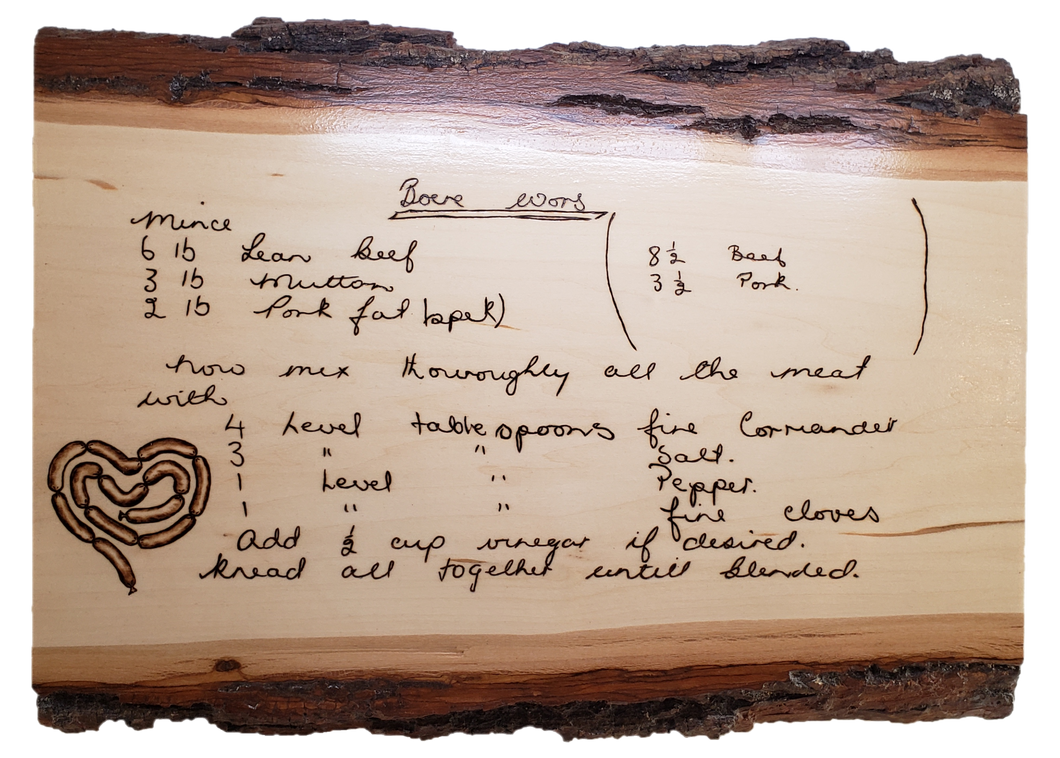 Boere Wors
Mince
6 lb Lean beef
3 lb Mutton
2 lb Pork fat (spek)
8 1/2 Beef
3 1/2 Pork.
now mix thoroughly all the meat
with
4 Level tablespoons fine Corriander
3 " " Salt.
1 Level " Pepper.
1 " " fine cloves
Add 1/2 cup vinegar if desired.
knead all together untill blended.